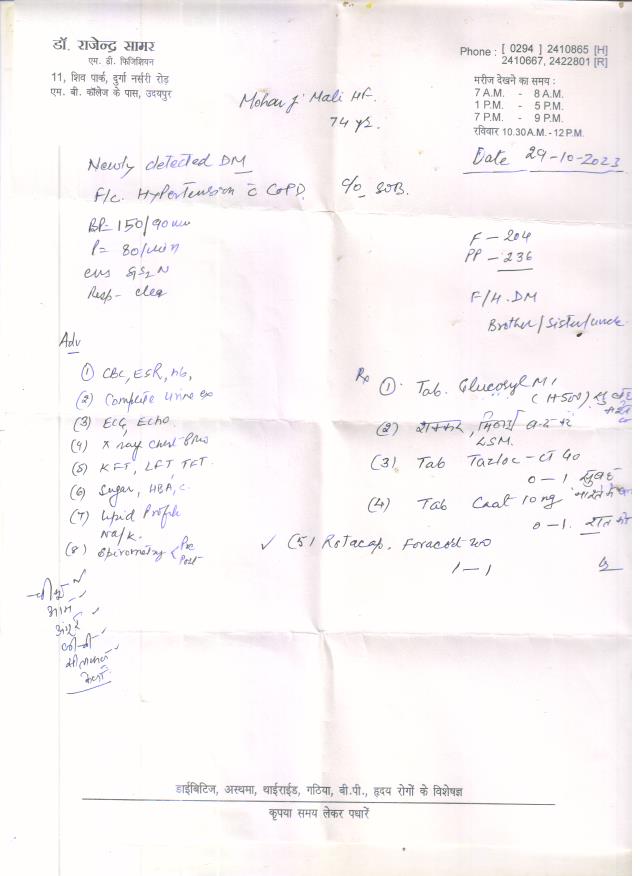 डॉ. राजेन्द्र सामर
एम. डी. फिजिशियन
11, शिव पार्क, दुर्गा नर्सरी रोड़
एम. बी. कॉलेज के पास, उदयपुर
Phone : [ 0294 ] 2410865 [H]
2410667, 2422801 [R]
मरीज देखने का समय :
7 A.M. - 8 A.M.
1 P.M. - 5 P.M.
7 P.M. - 9 P.M.
रविवार 10.30 A.M. - 12 P.M.
Mohan Mali
74 yr.
Date 29-10-2023
Newly detected DM
F/c. Hypertension c̄ COPD. c/o SOB.
BP= 150/90
P= 80/min
S1S2 N
Resp- clea
F - 204
PP - 236
F/H. DM
Brother/Sister/uncle
Adv
(1) CBC, ESR, Hb,
(2) Complete Urine ex
(3) ECG, Echo.
(4) X ray Chest
(5) KFT, LFT TFT.
(6) Sugar, HBA,c.
(7) Lipid Profile
Na/k.
(8) Spirometry < Pre
Post
Rx (1). Tab. Glucosyl M1
(H500)
(2) शक्कर, मिठाई
(3) Tab Tazloc-CT 40
0 - 1 सुबह
(4) Tab 10 mg
0 - 1. रात को
(5) Rotacap. Foracort 200
1 - 1
आम
अंगूर
केला
डाईबिटिज, अस्थमा, थाईराईड, गठिया, बी.पी., हृदय रोगों के विशेषज्ञ
कृपया समय लेकर पधारें